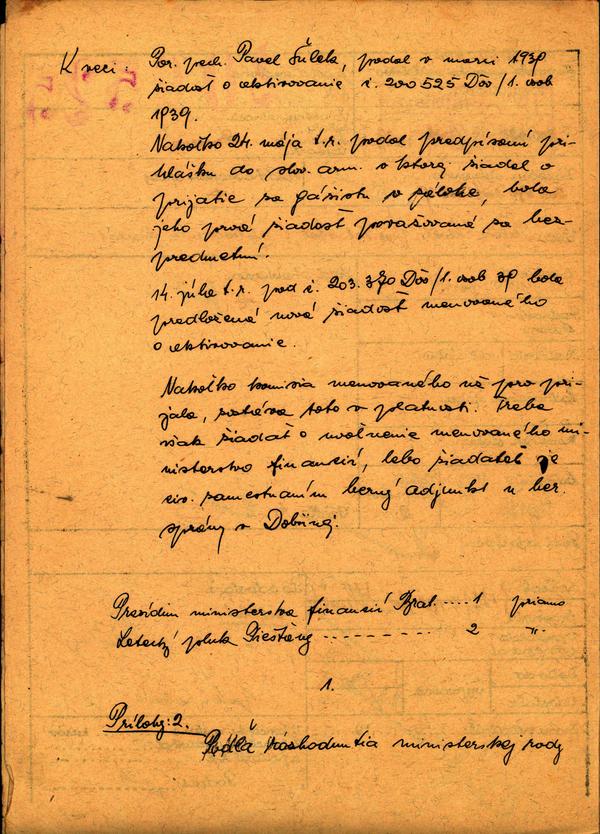 K veci: Por. pech. Pavel Šulek, podal v marci 1939
žiadosť o aktivovanie č. 200525 Dôv/1. osob
1939.
Nakoľko 24. mája t.r. podal predpísanú pri-
hlášku do slov. arm. v ktorej žiadal o
prijatie za gážistu v zálohe, bola
jeho prvá žiadosť považovaná za bez-
predmetnú.
14. júla t.r. pod č. 203.370 Dôv/1. osob 39 bola
predložená nová žiadosť menovaného
o aktivovanie.
Nakoľko komisia menovaného už pro pri-
jala, zostáva toto v platnosti. Treba
však žiadať o uvoľnenie menovaného mi-
nisterstvo financií, lebo žiadateľ je
civ. zamestnaním berný adjunkt u ber.
správy v Dobšinej.
Prezídium ministerstva financií Brat. .... 1 priamo
Letecký pluk Piešťany - - - - - - - - - 2 "
1.
Prílohy: 2.
Podľa rozhodnutia ministerskej rady